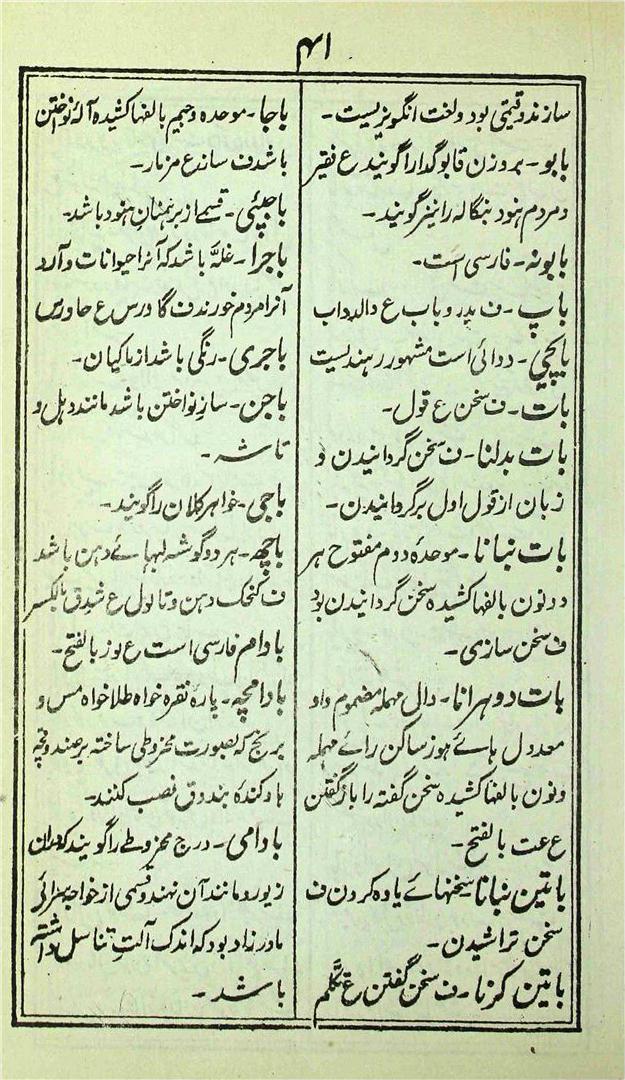 ۴۱
سازند و قیمتی بود و لغت انگریزیست -
بابو - بر وزن قابو گدا را گویند ع فقیر
و مردم هنود بنگاله را نیز گویند -
بابونه - فارسی است -
باپ - ف پدر و باب ع والد و اب
باپچی - دوائی است مشهور در هندیست
بات - ف سخن ع قول -
بات بدلنا - ف سخن گردانیدن و
زبان از قول اول برگردانیدن -
بات بنانا - موحدهٔ دوم مفتوح هر
دو نون بالفها کشیده سخن گردانیدن بود
ف سخن سازی -
بات دوهرانا - دال مهمله مضموم واو
معدول هائے هوز ساکن رائے مهمله
و نون بالفها کشیده سخن گفته را باز گفتن
ع عت بالفتح -
باتین بنانا سخنهائے یاده کردن ف
سخن تراشیدن -
باتین کرنا - ف سخن گفتن ع تکلم
باجا - موحده و جیم بالفها کشیده آلهٔ نواختن
باشد ف ساز ع مزمار -
باجپئی - قسمے از برهمنان هنود باشد -
باجرا - غلّه باشد که آنرا حیوانات و آرد
آنرا مردم خورند ف گاورس ع جاورس
باجری - رنگی باشد از ماکیان -
باجن - ساز نواختن باشد مانند دهل و
تاشه -
باجی - خواهر کلان را گویند -
باچھ - هر دو گوشه لبهائے دهن باشد
ف کنجک دهن و تالول ع شدق بالکسر
بادام فارسی است ع لوز بالفتح -
بادامچه - پارهٔ نقره خواه طلا خواه مس و
برنج که بصورت مخروطی ساخته بر صندوقچه
یا و کندهٔ بندوق نصب کنند -
بادامی - درج مخروطے را گویند که دران
زیور و مانند آن نهند و قسمی از خواجه سرائی
مادر زاد بود که اندک آلت تناسل داشته
باشد -